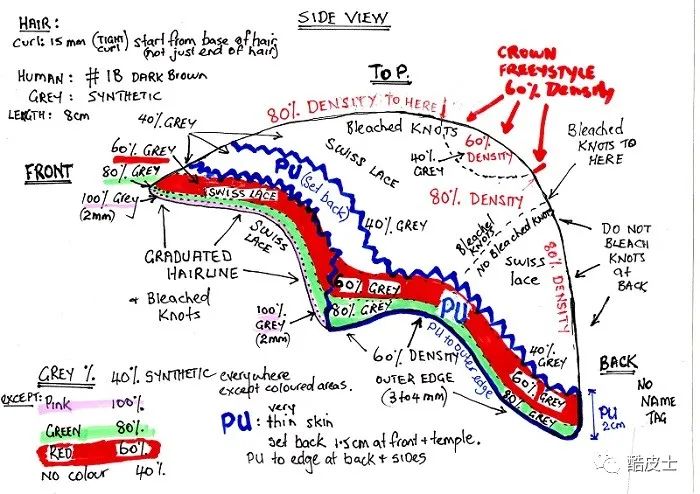 SIDE VIEW
HAIR:
Curl: 15 mm (TIGHT curl) start from base of hair
(not just end of hair)
HUMAN: #1B DARK BROWN
GREY: SYNTHETIC
LENGTH: 8cm
TOP.
CROWN
FREEYSTYLE
60% Density
80% DENSITY TO HERE
Bleached KNOTS
40% GREY
60%
DENSITY
40% GREY
Bleached
KNOTS TO
HERE
60% GREY
FRONT
80% GREY
100% Grey
(2mm)
PU
(Set back)
SWISS LACE
80% DENSITY
SWISS LACE
40% GREY
Bleached
KNOTS
NO Bleached Knots
SWISS
lace
80% DENSITY
DO NOT
BLEACH
KNOTS
at
BACK
SWISS
LACE
GRADUATED
HAIRLINE
& Bleached
Knots
100%
GREY
(2mm)
60% GREY
80% GREY
PU
PU to outer edge
60% DENSITY
OUTER EDGE
(3 to 4mm)
40% GREY
60% GREY
80% GREY
BACK
NO
NAME
TAG
PU
2cm
GREY %. 40% SYNTHETIC everywhere
except coloured areas.
EXCEPT:
Pink 100%
GREEN 80%
RED 60%
NO COLOUR 40%
PU: very thin skin
set back 1.5cm at front + temple.
PU to edge at back + sides
酷皮士